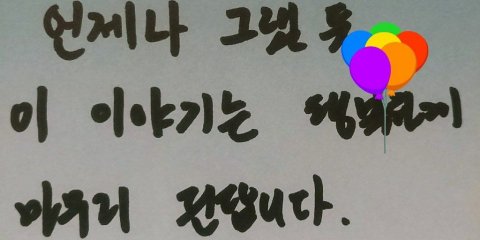 언제나 그랬 듯
이 이야기는 행복하게
마무리 된답니다.